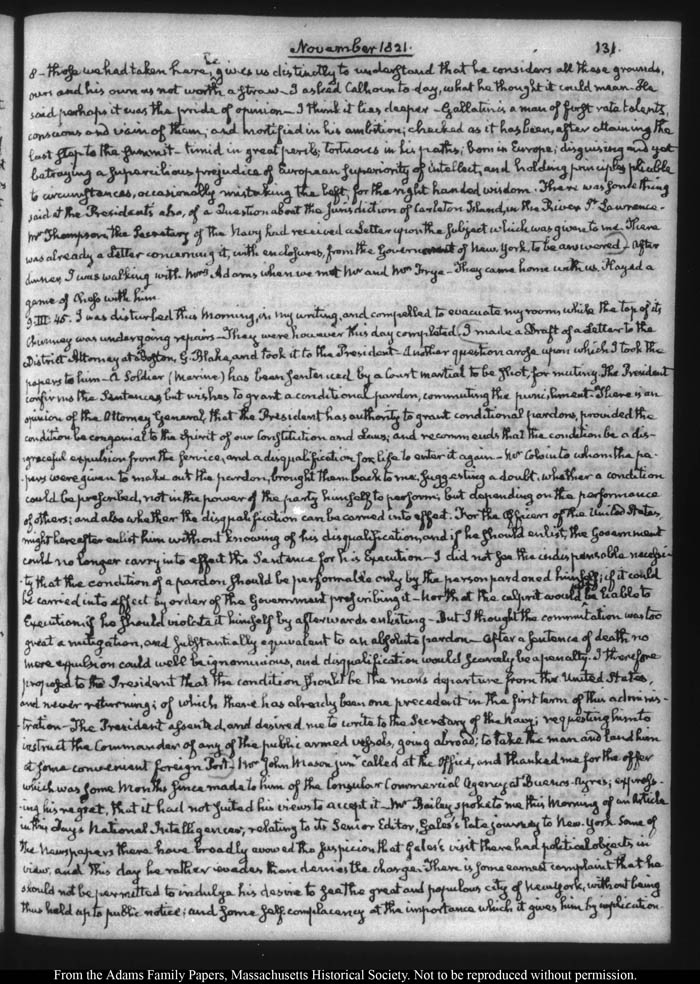 November 1821.
131.
8 – those we had taken here, he gives us distinctly to understand that he considers all these grounds,
ours and his own as not worth a straw – I asked Calhoun to-day, what he thought it could mean – He
said perhaps it was the pride of opinion – I think it lies deeper – Gallatin is a man of first rate talents,
conscious and vain of them; and mortified in his ambition; checked as it has been, after attaining the
last step to the summit – timid in great perils; tortuous in his paths; born in Europe; disguising and yet
betraying a supercilious prejudice of European superiority of intellect, and holding principles pliable
to circumstances, occasionally mistaking the left, for the right handed wisdom. There was something
said at the President's also, of a Question about the jurisdiction of Carleton Island, in the River St. Lawrence –
Mr. Thompson the Secretary of the Navy had received a Letter upon the subject which was given to me. There
was already a Letter concerning it, with enclosures, from the Government of New York, to be answered – After
dinner I was walking with Mrs. Adams when we met Mr. and Mrs. Frye – They came home with us. Played a
game of Chess with him.
9. III. 45. I was disturbed this Morning, in my writing, and compelled to evacuate my room, while the top of its
Chimney was undergoing repairs – They were however this day completed. I made a Draft of a Letter to the
District Attorney at Boston, G. Blake, and took it to the President – Another question arose upon which I took the
papers to him – A Soldier (Marine) has been sentenced by a Court martial to be shot, for mutiny. The President
confirms the Sentence, but wishes to grant a conditional pardon, commuting the punishment – There is an
opinion of the Attorney General, that the President has authority to grant conditional pardons, provided the
condition be congenial to the Spirit of our Constitution and Laws; and recommends that the condition be a dis-
graceful expulsion from the service, and a disqualification for life to enter it again – Mr. to whom the pa-
pers were given to make out the pardon, brought them back to me, suggesting a doubt, whether a condition
could be prescribed, not in the power of the party himself to perform, but depending on the performance
of others; and also whether the disqualification can be carried into effect. For the Officers of the United States,
might hereafter enlist him without knowing of his disqualification, and if he should enlist, the Government
could no longer carry into effect the Sentence for his Execution – I did not see the indispensable necessi-
ty that the condition of a pardon should be performable only by the person pardoned himself; if it could
be carried into effect by order of the Government prescribing it – nor that the culprit would not be liable to
Execution, if he should violate it himself by afterwards enlisting – But I thought the commutation was too
great a mitigation, and substantially equivalent to an absolute pardon – After a sentence of death no
mere expulsion could well be ignominious, and disqualification would scarcely be a penalty. I therefore
proposed to the President that the condition should be the man's departure from the United States,
and never returning; of which there has already been one precedent in the first term of this adminis-
tration – The President assented, and desired me to write to the Secretary of the Navy; requesting him to
instruct the Commander of any of the public armed vessels, going abroad; to take the man and land him
at some convenient foreign Port – Mr. John Mason junr. called at the Office, and thanked me for the offer
which was some Months since made to him of the Consular Commercial Agency at Buenos-Ayres; express-
ing his regret, that it had not suited his views to accept it – Mr. Bailey spoke to me this Morning of an Article
in this day's National Intelligencer, relating to its Senior Editor, Gales's late journey to New-York. Some of
the Newspapers there have broadly avowed the suspicion that Gales's visit there had political objects in
view, and this day he rather evades than denies the charge. There is some earnest complaint that he
should not be permitted to indulge his desire to see the great and populous city of New York, without being
thus held up to public notice; and some self complacency at the importance which it gives him by implication.
From the Adams Family Papers, Massachusetts Historical Society. Not to be reproduced without permission.